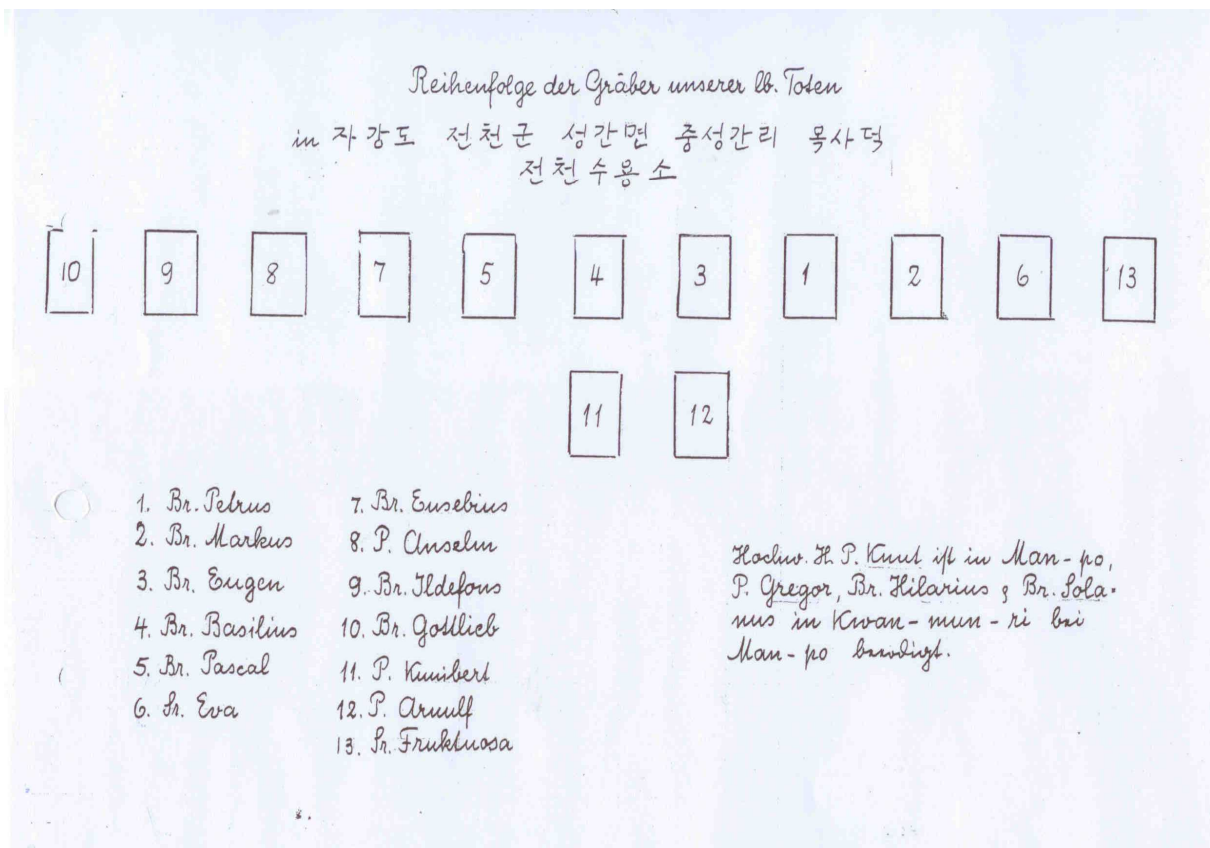 Reihenfolge der Gräber unserer lb. Toten
in 자강도 전천군 성간면 중성간리 목사덕
전천수용소
10 9 8 7 5 4 3 1 2 6 13
11 12
1. Br. Petrus
2. Br. Markus
3. Br. Eugen
4. Br. Basilius
5. Br. Pascal
6. Sr. Eva
7. Br. Eusebius
8. P. Anselm
9. Br. Ildefons
10. Br. Gottlieb
11. P. Kunibert
12. P. Arnulf
13. Sr. Fruktuosa
Hochw. H. P. Knut ist in Man-po,
P. Gregor, Br. Hilarius & Br. Sola-
nus in Kwan-mun-ri bei
Man-po beerdigt.